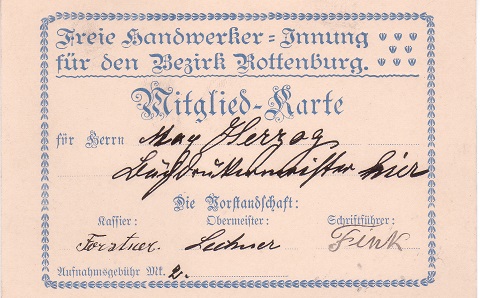 Freie Handwerker-Innung
für den Bezirk Rottenburg.
Mitglied-Karte
für Herrn Max Herzog
Buchdruckermeister hier
Die Vorstandschaft:
Kassier: Obermeister: Schriftführer:
Forstner. Lechner Fink
Aufnahmsgebühr Mk. 2.